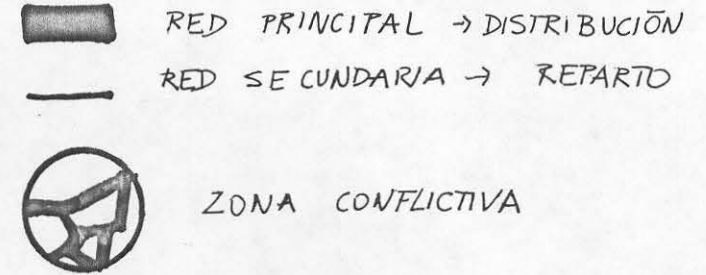 RED PRINCIPAL → DISTRIBUCIÓN
RED SECUNDARIA → REPARTO
ZONA CONFLICTIVA